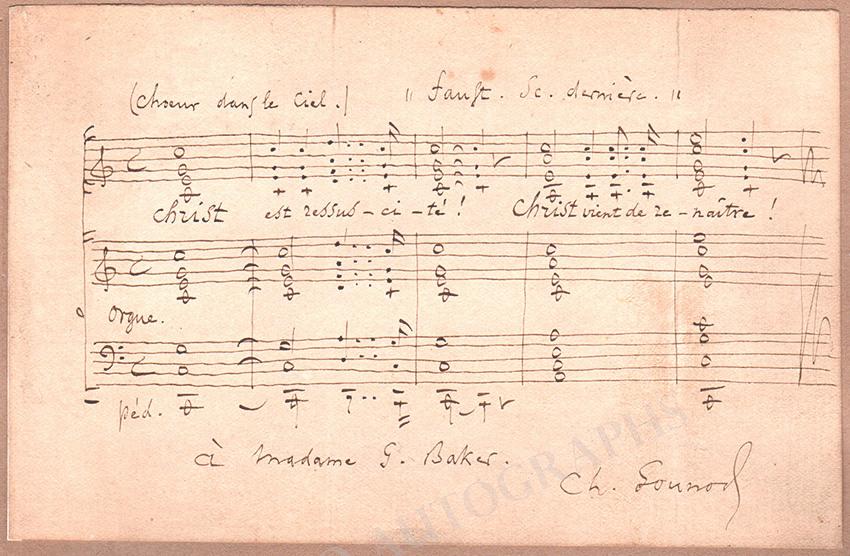 (Chœur dans le Ciel.) " Faust. Sc. dernière. "
Christ est ressus-ci-té! Christ vient de re-naître!
Orgue.
péd.
à Madame G. Baker.
Ch. Gounod
AUTOGRAPHS